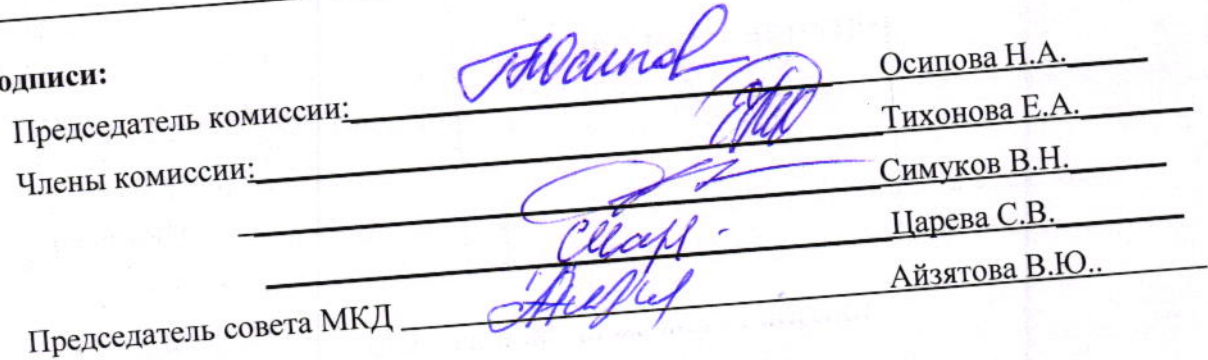 одписи:
Председатель комиссии: Осипова Н.А.
Члены комиссии: Тихонова Е.А.
Симуков В.Н.
Царева С.В.
Председатель совета МКД Айзятова В.Ю..